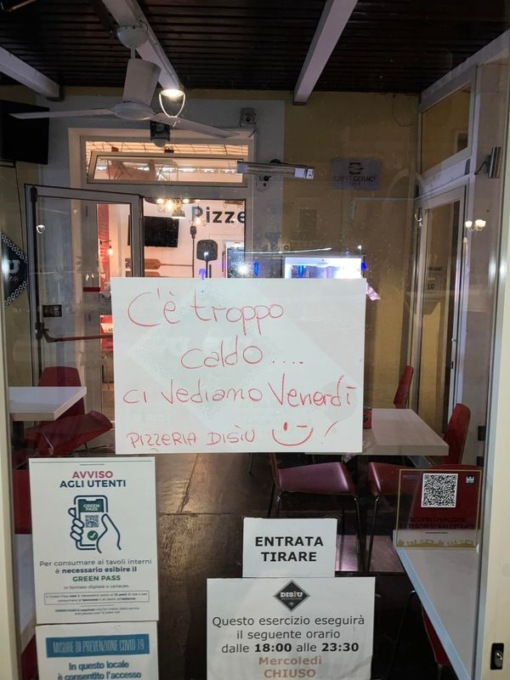 Pizze
C'è troppo
caldo....
ci vediamo Venerdì
PIZZERIA DISÌU
AVVISO
AGLI UTENTI
GREEN
PASS
Per consumare ai tavoli interni
è necessario esibire il
GREEN PASS
in formato digitale o cartaceo.
MISURE DI PREVENZIONE COVID-19
In questo locale
è consentito l'accesso
ENTRATA
TIRARE
DISIU
Questo esercizio eseguirà
il seguente orario
dalle 18:00 alle 23:30
Mercoledì
CHIUSO